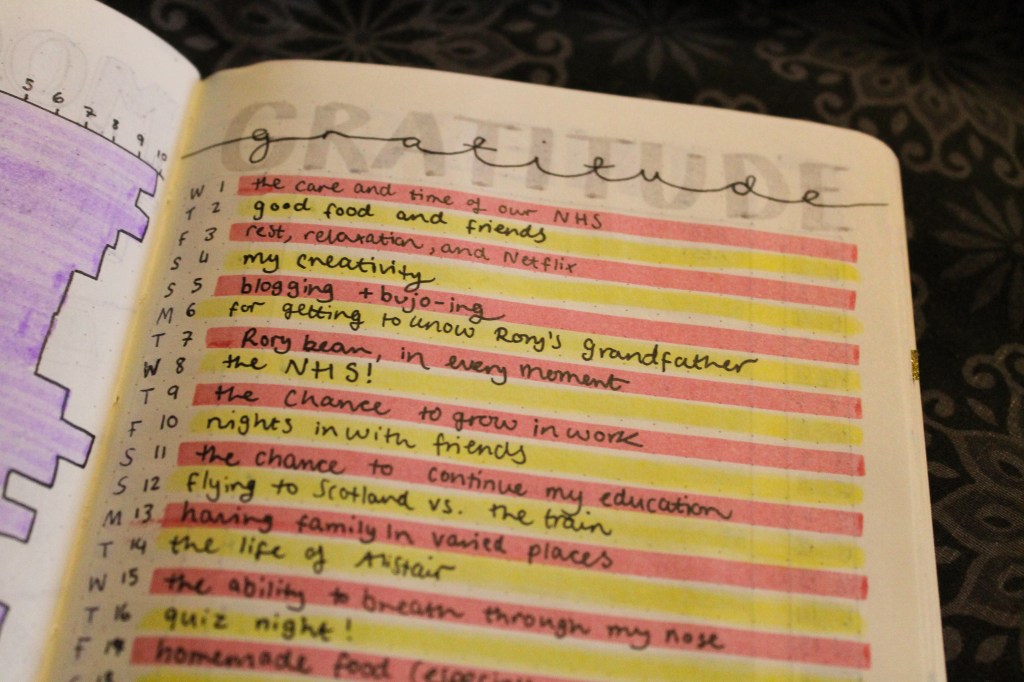 5 6 7 8 9 10
GRATITUDE
gratitude
W 1 the care and time of our NHS
T 2 good food and friends
F 3 rest, relaxation, and Netflix
S 4 my creativity
S 5 blogging + bujo-ing
M 6 for getting to know Rory's grandfather
T 7 Rory bean, in every moment
W 8 the NHS!
T 9 the chance to grow in work
F 10 nights in with friends
S 11 the chance to continue my education
S 12 flying to Scotland vs. the train
M 13 having family in varied places
T 14 the life of Alistair
W 15 the ability to breath through my nose
T 16 quiz night!
F homemade food (especia